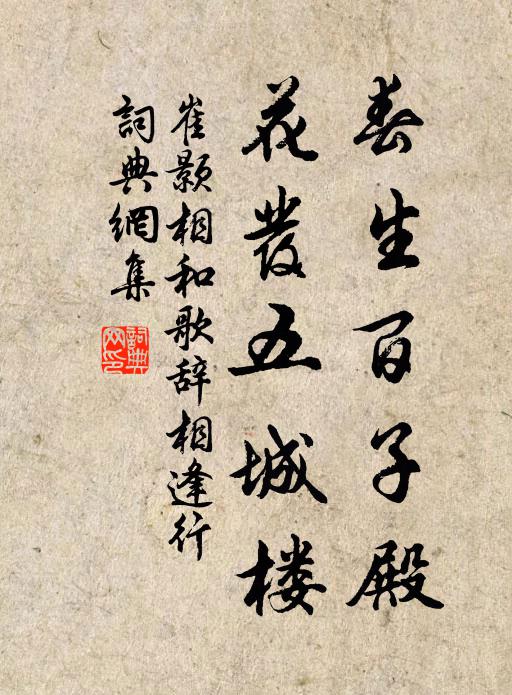 春生百子殿
花發五城楼
崔颢相和歌辞相逢行
詞典網集
詞典网印